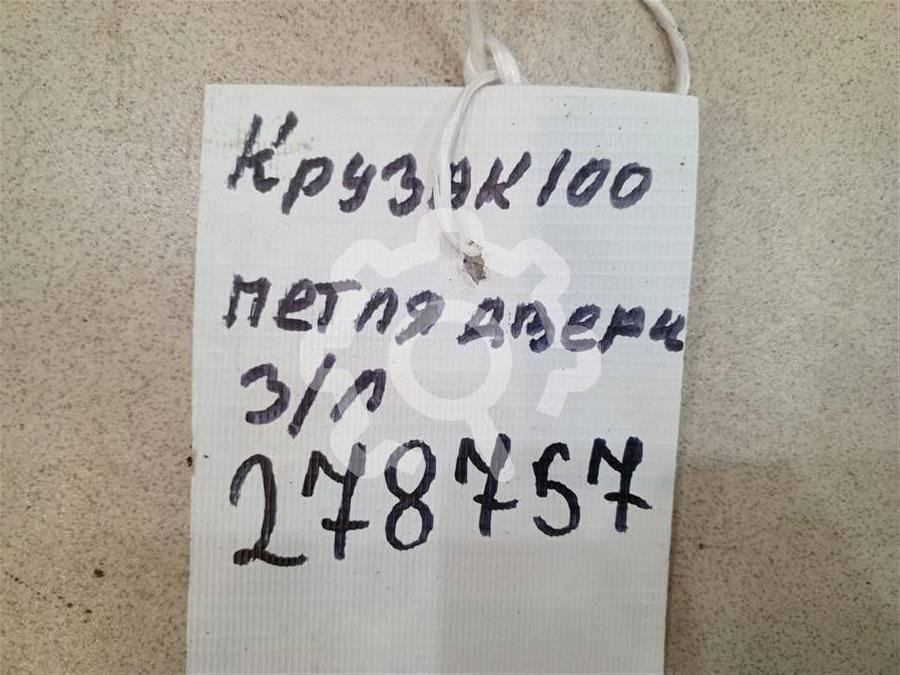 Крузак 100
петля двери
З/Л
278757